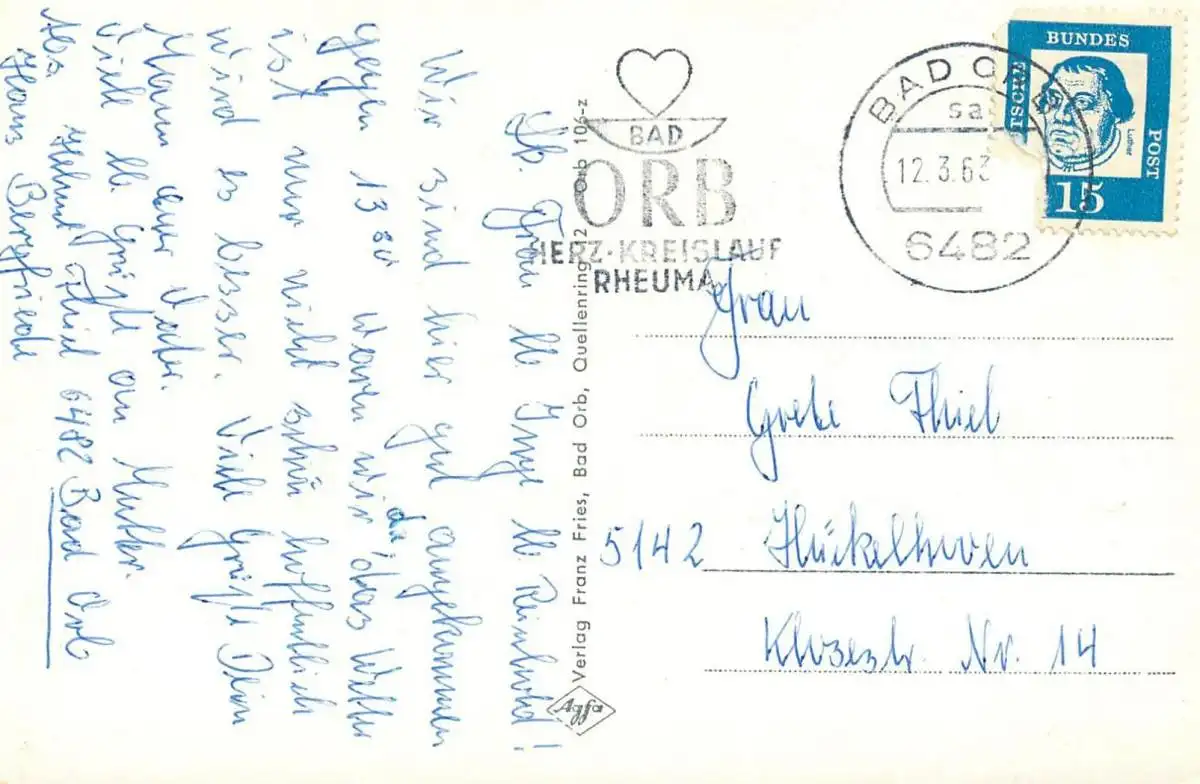 Lb. Frau lb. Inge lb. Reinhold!
Wir sind hier gut angekommen
gegen 13 30 waren wir da das Wetter
ist nur nicht schön hoffentlich
wird es besser. Viele Grüße Dein
Mann euer Vater.
Viele lb. Grüße an Mutter.
Abs Thiel 6482 Bad Orb
Haus Bergfriede
Verlag Franz Fries, Bad Orb, Quellenring 12 Orb 106-z
Agfa
BAD
ORB
HERZ·KREISLAUF
RHEUMA
BAD ORB
sa
12.3.63
6482
BUNDES
POST
Luther
15
Frau
Grete Thiel
5142 Hückelhoven
Nr. 14